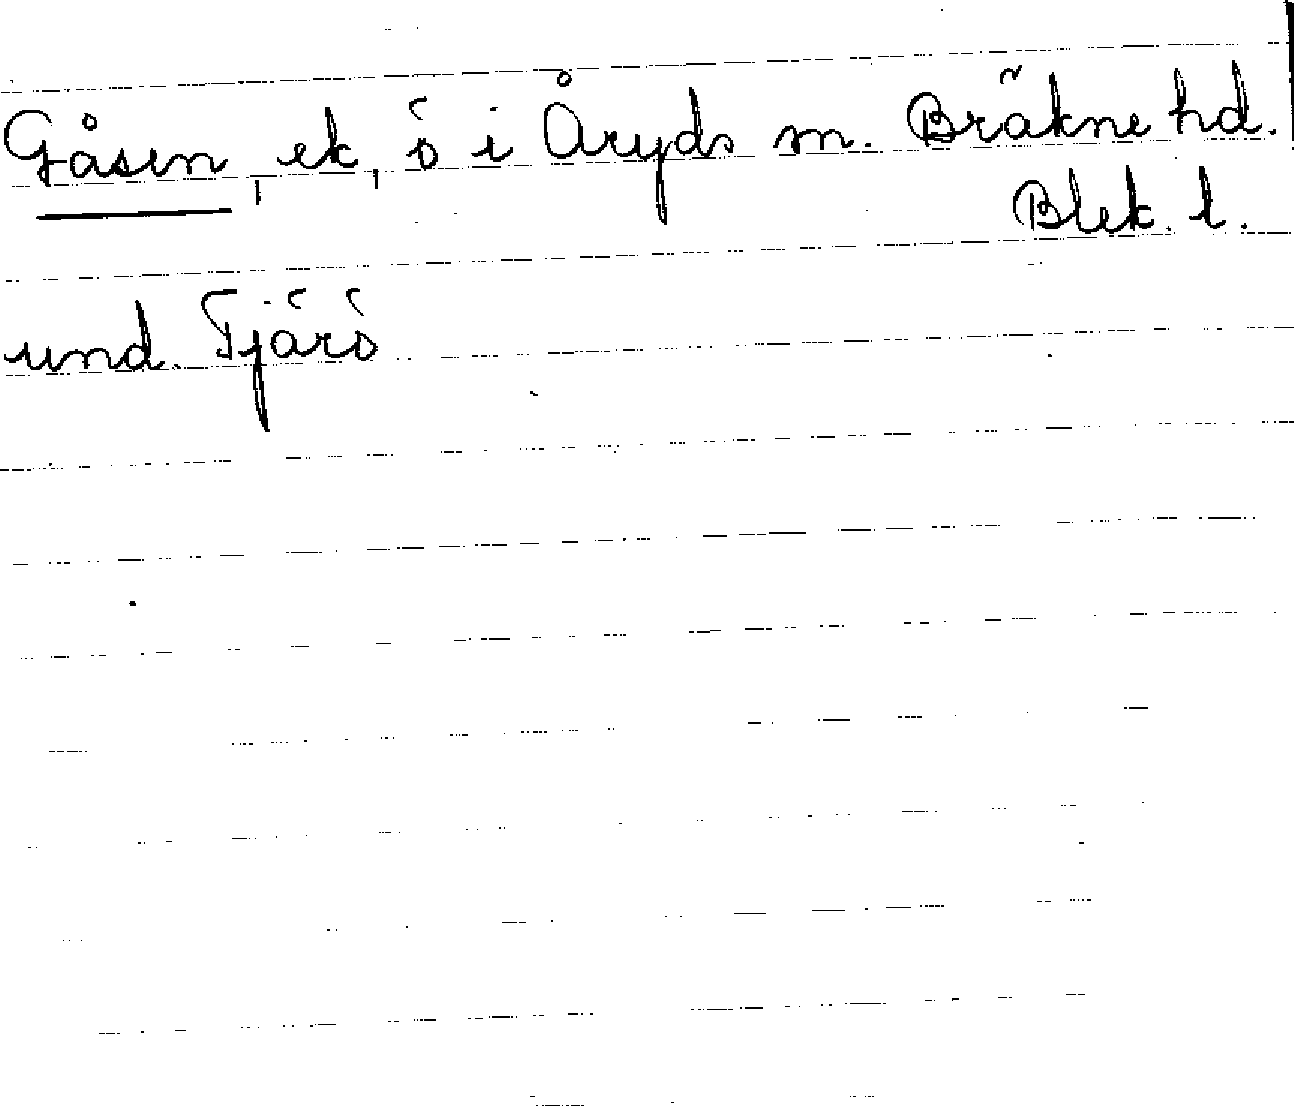 Gåsen, ek, ö i Åryds sn. Bräkne hd.
Blek. l.
und. Tjärö